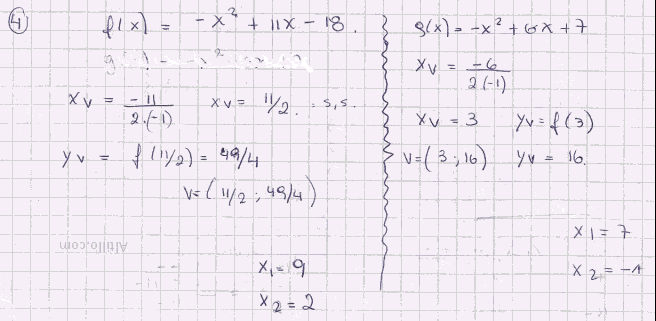 4) f(x) = -x² + 11x - 18.
xv = -11 / 2.(-1)   xv = 11/2. = 5,5.
yv = f(11/2) = 49/4
V=(11/2 ; 49/4)
x1 = 9
x2 = 2
g(x) = -x² + 6x + 7
xv = -6 / 2(-1)
xv = 3   yv = f(3)
V=(3 ; 16)   yv = 16.
x1 = 7
x2 = -1
Altillo.com